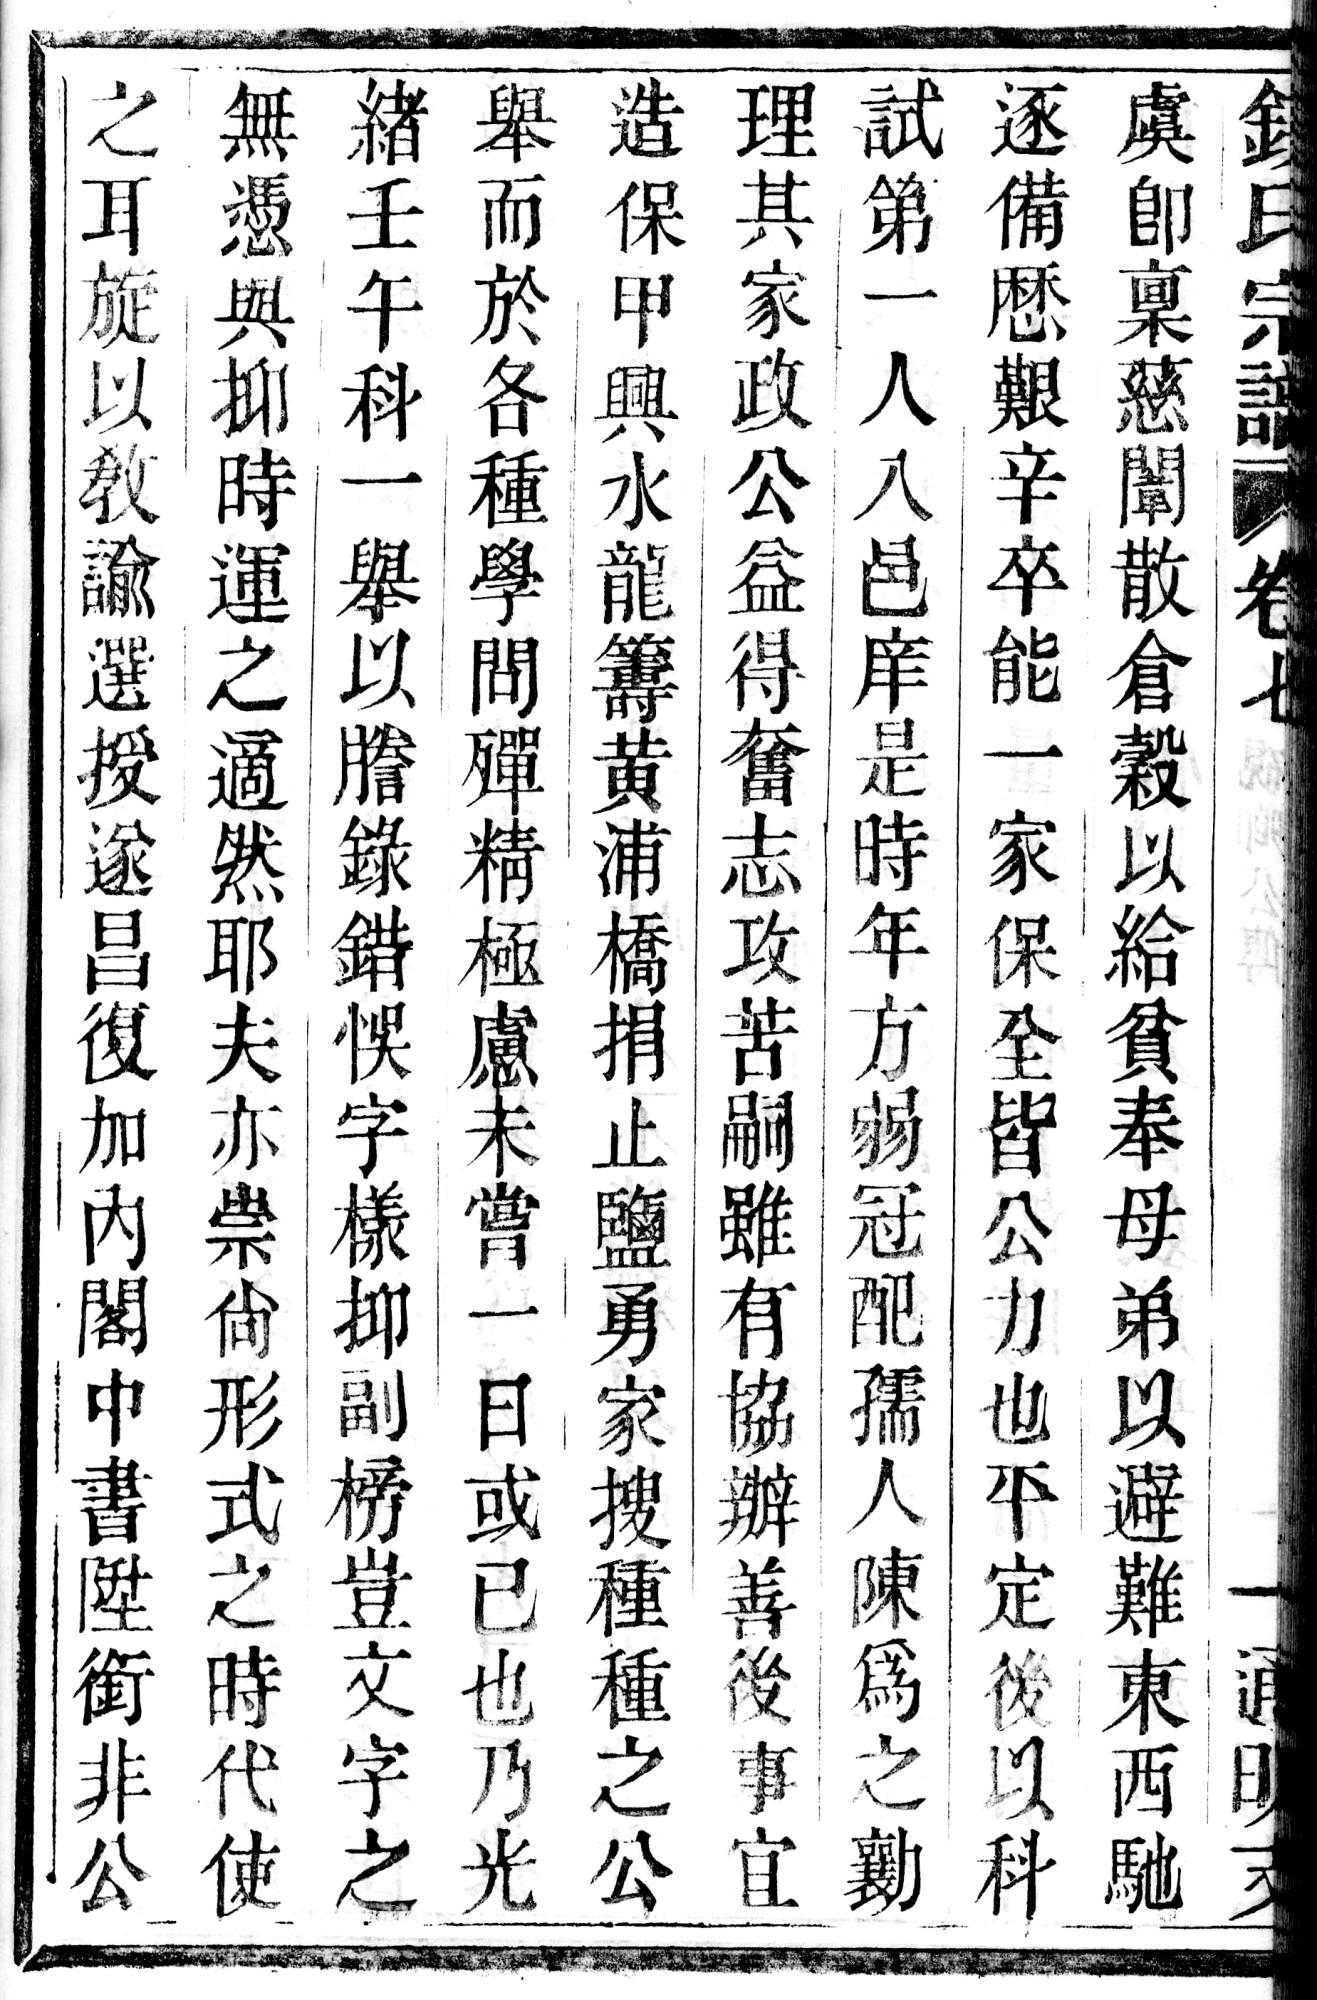 氏宗譜 卷七 一
虞卽稟慈闈散倉穀以給貧奉母弟以避難東西馳
逐備歷艱辛卒能一家保全皆公力也平定後以科
試第一人入邑庠是時年方弱冠配孺人陳爲之勷
理其家政公益得奮志攻苦嗣雖有協辦善後事宜
造保甲興水龍籌黃浦橋捐止鹽勇家搜種種之公
舉而於各種學問殫精極慮未嘗一日或已也乃光
緒壬午科一舉以謄錄錯悞字樣抑副榜豈文字之
無憑與抑時運之適然耶夫亦崇尙形式之時代使
之耳旋以敎諭選授遂昌復加內閣中書陞銜非公